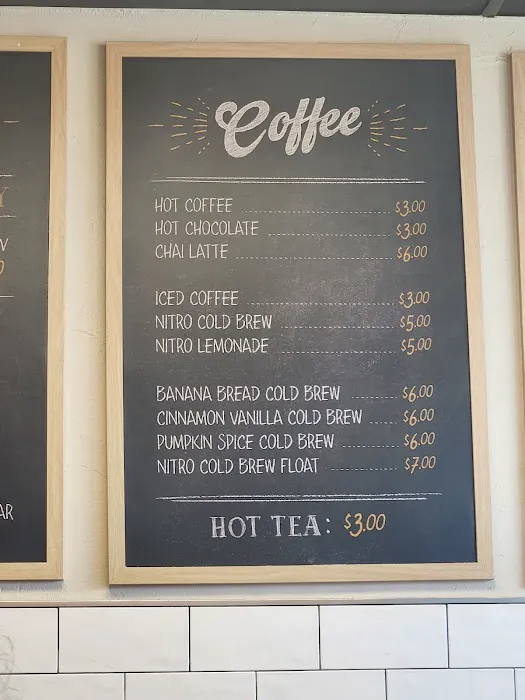 Coffee
HOT COFFEE $3.00
HOT CHOCOLATE $3.00
CHAI LATTE $6.00
ICED COFFEE $3.00
NITRO COLD BREW $5.00
NITRO LEMONADE $5.00
BANANA BREAD COLD BREW $6.00
CINNAMON VANILLA COLD BREW $6.00
PUMPKIN SPICE COLD BREW $6.00
NITRO COLD BREW FLOAT $7.00
HOT TEA: $3.00